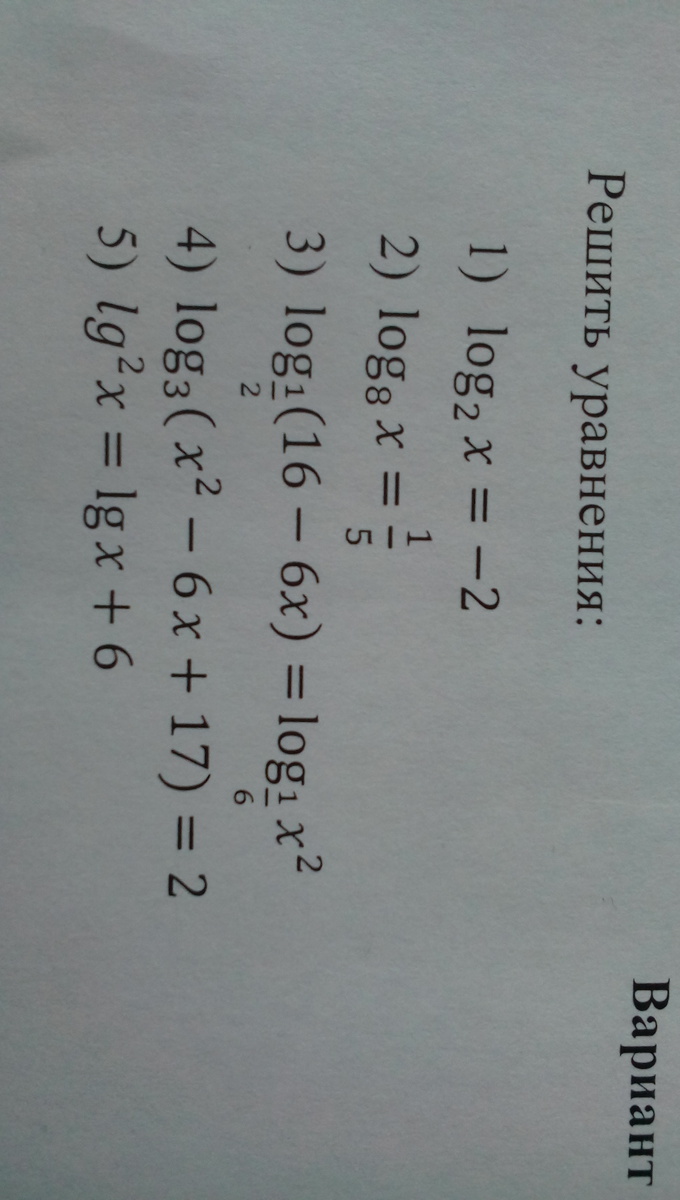 Вариант
Решить уравнения:
1) log₂ x = −2
2) log₈ x = 1/5
3) log_{1/2}(16 − 6x) = log_{1/6} x²
4) log₃(x² − 6x + 17) = 2
5) lg²x = lg x + 6